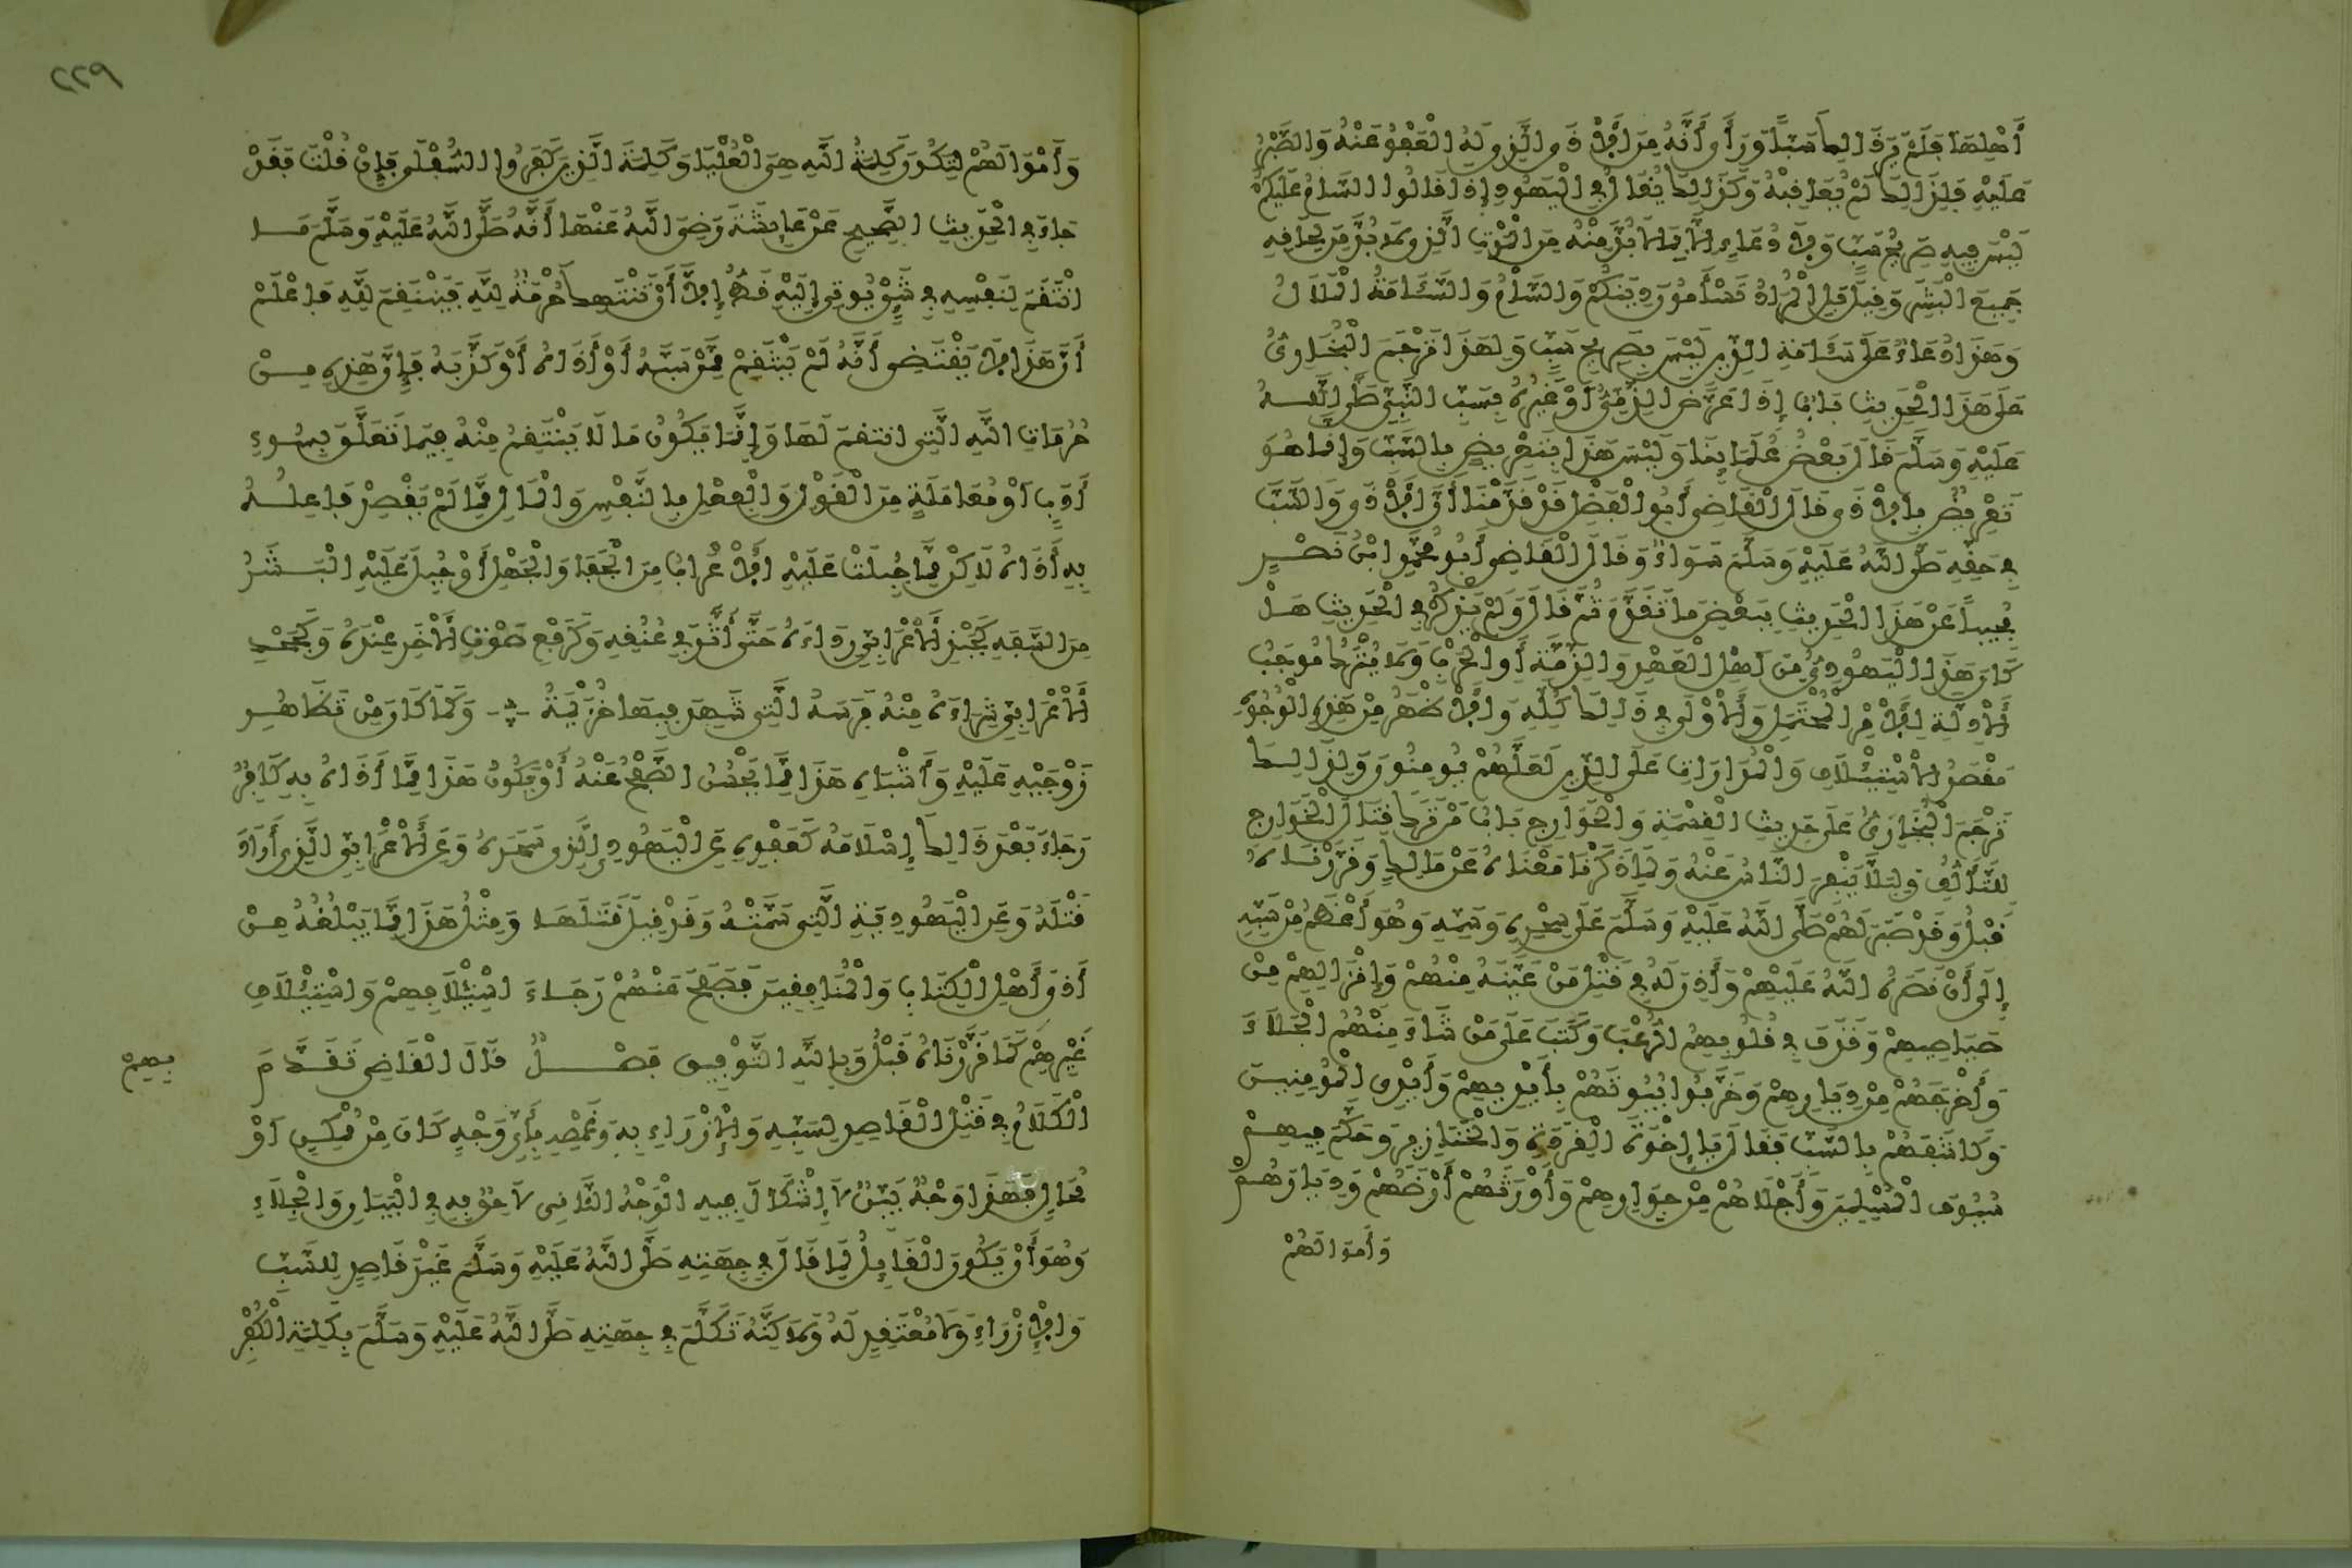 أَهْلِهَا فَلَمْ يَرَ ذَالِكَ سَبًّا وَرَأَى أَنَّهُ مِنَ الْأَذَى الَّذِي لَهُ الْعَفْوُ عَنْهُ وَالصَّبْرُ
عَلَيْهِ فَلِذَالِكَ لَمْ يُعَاقِبْهُ وَكَذَالِكَ يُقَالُ فِي الْيَهُودِ إِذْ قَالُوا السَّامُ عَلَيْكُمْ
لَيْسَ فِيهِ صَرِيحُ سَبٍّ وَلَا دُعَاءٍ إِلَّا بِمَا لَا بُدَّ مِنْهُ مِنَ الْمَوْتِ الَّذِي لَا بُدَّ مِنْ لِحَاقِهِ
جَمِيعَ الْبَشَرِ وَقِيلَ بَلِ الْمُرَادُ تَسْأَمُونَ دِينَكُمْ وَالسَّأْمُ وَالسَّئَامَةُ الْمَلَالُ
وَهَذَا دُعَاءٌ عَلَى سَئَامَةِ الدِّينِ لَيْسَ بِصَرِيحِ سَبٍّ وَلِهَذَا تَرْجَمَ الْبُخَارِيُّ
عَلَى هَذَا الْحَدِيثِ بَابٌ إِذَا عَرَّضَ الذِّمِّيُّ أَوْ غَيْرُهُ بِسَبِّ النَّبِيِّ صَلَّى اللَّهُ
عَلَيْهِ وَسَلَّمَ قَالَ بَعْضُ عُلَمَائِنَا وَلَيْسَ هَذَا بِتَعْرِيضٍ بِالسَّبِّ وَإِنَّمَا هُوَ
تَعْرِيضٌ بِالْأَذَى قَالَ الْقَاضِي أَبُو الْفَضْلِ قَدْ قَدَّمْنَا أَنَّ الْأَذَى وَالسَّبَّ
فِي حَقِّهِ صَلَّى اللَّهُ عَلَيْهِ وَسَلَّمَ سَوَاءٌ وَقَالَ الْقَاضِي أَبُو مُحَمَّدِ ابْنُ نَصْرٍ
مُجِيبًا عَنْ هَذَا الْحَدِيثِ بِبَعْضِ مَا تَقَدَّمَ ثُمَّ قَالَ وَلَمْ يَذْكُرْ فِي الْحَدِيثِ هَلْ
كَانَ هَذَا الْيَهُودِيُّ مِنْ أَهْلِ الْعَهْدِ وَالذِّمَّةِ أَوِ الْحَرْبِ وَلَا يُتْرَكُ مُوجَبُ
الْأَدِلَّةِ لِلْأَمْرِ الْمُحْتَمَلِ وَالْأَوْلَى فِي ذَالِكَ كُلِّهِ وَالْأَظْهَرُ مِنْ هَذِهِ الْوُجُوهِ
مَقْصَدُ الْاسْتِئْلَافِ وَالْمُدَارَاتِ عَلَى الدِّينِ لَعَلَّهُمْ يُومِنُونَ وَلِذَالِكَ
تَرْجَمَ الْبُخَارِيُّ عَلَى حَدِيثِ الْقِسْمَةِ وَالْخَوَارِجِ بَابُ مَنْ تَرَكَ قِتَالَ الْخَوَارِجِ
لِلتَّأَلُّفِ وَلِيَلَّا يَنْفِرَ النَّاسُ عَنْهُ وَلِمَا ذَكَرْنَا مَعْنَاهُ عَنْ مَالِكٍ وَقَرَّرْنَاهُ
قَبْلُ وَقَدْ صَبَرَ لَهُمْ صَلَّى اللَّهُ عَلَيْهِ وَسَلَّمَ عَلَى سِحْرِهِ وَسَمِّهِ وَهُوَ أَعْظَمُ مِنْ سَبِّهِ
إِلَى أَنْ نَصَرَهُ اللَّهُ عَلَيْهِمْ وَأَذِنَ لَهُ فِي قَتْلِ مَنْ عَيَّنَهُ مِنْهُمْ وَإِنْزَالِهِمْ مِنْ
صَيَاصِيهِمْ وَقَذَفَ فِي قُلُوبِهِمُ الرُّعْبَ وَكَتَبَ عَلَى مَنْ شَاءَ مِنْهُمُ الْجَلَاءَ
وَأَخْرَجَهُمْ مِنْ دِيَارِهِمْ وَخَرَّبُوا بُيُوتَهُمْ بِأَيْدِيهِمْ وَأَيْدِي الْمُومِنِينَ
وَكَاشَفَهُمْ بِالسَّبِّ فَقَالَ يَا إِخْوَةَ الْقِرَدَةِ وَالْخَنَازِيرِ وَحَكَّمَ فِيهِمْ
سُيُوفَ الْمُسْلِمِينَ وَأَجْلَاهُمْ مِنْ جِوَارِهِمْ وَأَوْرَثَهُمْ أَرْضَهُمْ وَدِيَارَهُمْ
وَأَمْوَالَهُمْ
٢٢٩
وَأَمْوَالَهُمْ لِتَكُونَ كَلِمَةُ اللَّهِ هِيَ الْعُلْيَا وَكَلِمَةَ الَّذِينَ كَفَرُوا السُّفْلَى فَإِنْ قُلْتَ فَقَدْ
جَاءَ فِي الْحَدِيثِ الصَّحِيحِ عَنْ عَائِشَةَ رَضِيَ اللَّهُ عَنْهَا أَنَّهُ صَلَّى اللَّهُ عَلَيْهِ وَسَلَّمَ مَا
انْتَقَمَ لِنَفْسِهِ فِي شَيْءٍ يُوتَى إِلَيْهِ قَطُّ إِلَّا أَنْ تُنْتَهَكَ حُرْمَةٌ لِلَّهِ فَيَنْتَقِمَ لِلَّهِ فَاعْلَمْ
أَنَّ هَذَا لَا يَقْتَضِي أَنَّهُ لَمْ يَنْتَقِمْ مِمَّنْ سَبَّهُ أَوْ أَذَاهُ أَوْ كَذَّبَهُ فَإِنَّ هَذِهِ مِنْ
حُرُمَاتِ اللَّهِ الَّتِي انْتَقَمَ لَهَا وَإِنَّمَا يَكُونُ مَا لَا يَنْتَقِمُ مِنْهُ فِيمَا تَعَلَّقَ بِسُوءِ
أَدَبٍ أَوْ مُعَامَلَةٍ مِنَ الْقَوْلِ وَالْفِعْلِ بِالنَّفْسِ وَالْمَالِ مِمَّا لَمْ يَقْصِدْ فَاعِلُهُ
بِهِ أَذَاهُ لَاكِنْ مِمَّا جُبِلَتْ عَلَيْهِ الْأَعْرَابُ مِنَ الْجَفَا وَالْجَهْلِ أَوْ جُبِلَ عَلَيْهِ الْبَشَرُ
مِنَ السَّفَهِ كَجَبْذِ الْأَعْرَابِيِّ رِدَاءَهُ حَتَّى أَثَّرَ فِي عُنُقِهِ وَكَرَفْعِ صَوْتِ الْأَخَرِ عِنْدَهُ وَكَجَحْدِ
الْأَعْرَابِيِّ شِرَاءَهُ مِنْهُ فَرَسَهُ الَّتِي شَهِدَ فِيهَا خُزَيْمَةُ وَكَمَا كَانَ مِنْ تَظَاهُرِ
زَوْجَيْهِ عَلَيْهِ وَأَشْبَاهِ هَذَا مِمَّا يَحْسُنُ الصَّفْحُ عَنْهُ أَوْ يَكُونُ هَذَا مِمَّا أَذَاهُ بِهِ كَافِرٌ
رَجَاءَ بَعْدَ ذَالِكَ إِسْلَامَهُ كَعَفْوِهِ عَنِ الْيَهُودِيِّ الَّذِي سَحَرَهُ وَعَنِ الْأَعْرَابِيِّ الَّذِي أَرَادَ
قَتْلَهُ وَعَنِ الْيَهُودِيَّةِ الَّتِي سَمَّتْهُ وَقَدْ قِيلَ قَتَلَهَا وَمِثْلُ هَذَا مِمَّا يَبْلُغُهُ مِنْ
أَذَى أَهْلِ الْكِتَابِ وَالْمُنَافِقِينَ فَصَفَحَ عَنْهُمْ رَجَاءَ اسْتِئْلَافِهِمْ وَاسْتِئْلَافِ
غَيْرِهِمْ كَمَا قَرَّرْنَاهُ قَبْلُ وَبِاللَّهِ التَّوْفِيقُ فَصْلٌ قَالَ الْقَاضِي تَقَدَّمَ
بِهِمْ
الْكَلَامُ فِي قَتْلِ الْقَاصِدِ لِسَبِّهِ وَالْإِزْرَاءِ بِهِ وَغَمْصِهِ بِأَيِّ وَجْهٍ كَانَ مِنْ مُمْكِنٍ أَوْ
مُحَالٍ فَهَذَا وَجْهٌ بَيِّنٌ لَا إِشْكَالَ فِيهِ الْوَجْهُ الثَّانِي لَاحِقٌ بِهِ فِي الْبَيَانِ وَالْجَلَاءِ
وَهُوَ أَنْ يَكُونَ الْقَائِلُ لِمَا قَالَ فِي جِهَتِهِ صَلَّى اللَّهُ عَلَيْهِ وَسَلَّمَ غَيْرَ قَاصِدٍ لِلسَّبِّ
وَالْإِزْرَاءِ وَلَا مُعْتَقِدٍ لَهُ وَلَاكِنَّهُ تَكَلَّمَ فِي جِهَتِهِ صَلَّى اللَّهُ عَلَيْهِ وَسَلَّمَ بِكَلِمَةِ الْكُفْرِ